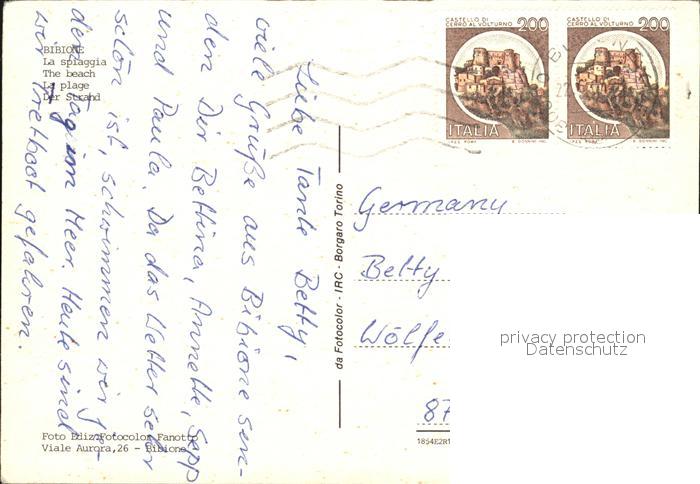 BIBIONE
La spiaggia
The beach
La plage
Der Strand
Liebe Tante Betty,
viele Grüße aus Bibione sen-
den Dir Bettina, Annette, Sepp
und Paula. Da das Wetter sehr
schön ist, schwimmen wir je-
den Tag im Meer. Heute sind
wir Tretboot gefahren.
Foto Ediz. Fotocolor Fanotto
Viale Aurora, 26 - Bibione
da Fotocolor - IRC - Borgaro Torino
CASTELLO DI
CERRO AL VOLTURNO 200
ITALIA
CASTELLO DI
CERRO AL VOLTURNO 200
ITALIA
Germany
Betty
Wölfe
87
1854E2R1
privacy protection
Datenschutz